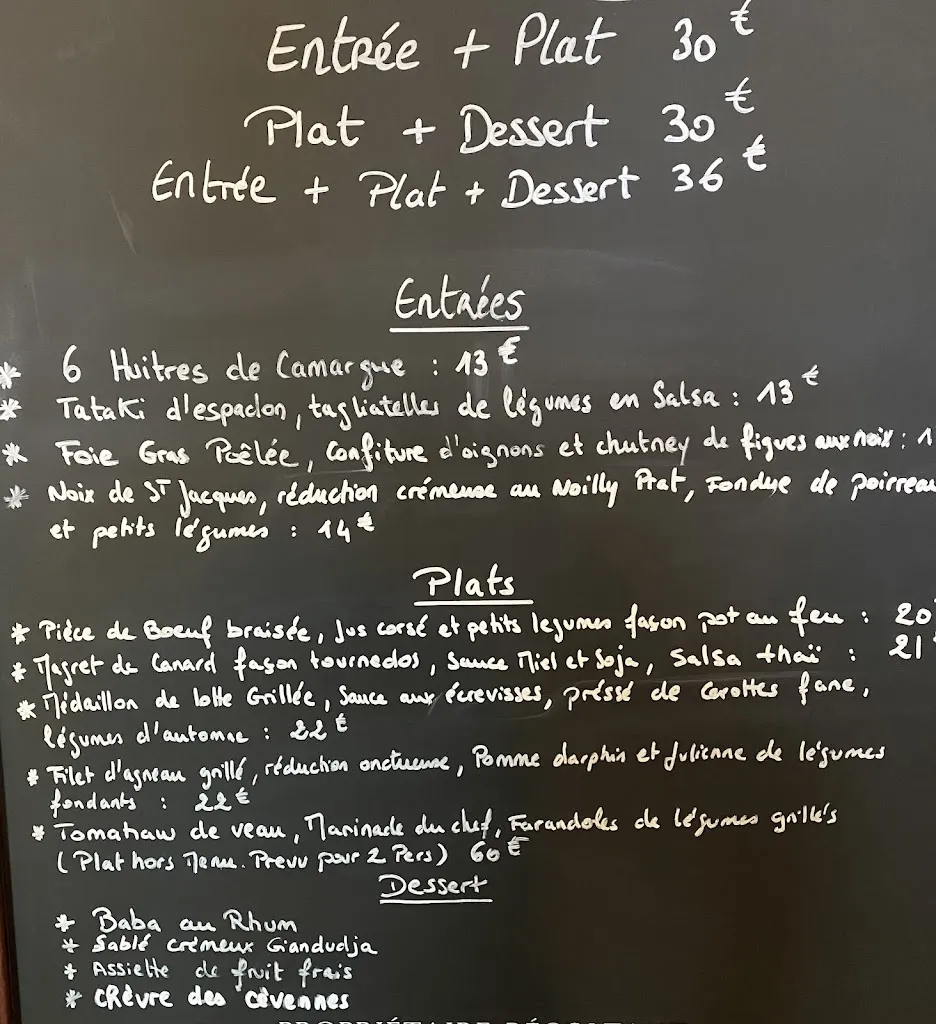 Entrée + Plat 30€
Plat + Dessert 30€
Entrée + Plat + Dessert 36€
Entrées
* 6 Huitres de Camargue : 13€
* Tataki d'espadon, tagliatelles de légumes en Salsa : 13€
* Foie Gras Poêlée, Confiture d'oignons et chutney de figues aux noix : 1
* Noix de ST Jacques, réduction crémeuse au Noilly Prat, Fondue de poireau
et petits légumes : 14€
Plats
* Pièce de Boeuf braisée, Jus corsé et petits legumes façon pot au feu : 20
* Magret de Canard façon tournedos, Sauce Miel et Soja, Salsa thaï : 21
* Médaillon de lotte Grillée, Sauce aux écrevisses, préssé de Carottes fane,
légumes d'automne : 22€
* Filet d'agneau grillé, réduction onctueuse, Pomme darphin et Julienne de légumes
fondants : 22€
* Tomahaw de veau, Marinade du chef, Farandoles de légumes grillés
(Plat hors Menu. Prevu pour 2 Pers) 60€
Dessert
* Baba au Rhum
* Sablé crémeux Giandudja
* Assiette de fruit frais
* CRèvre des cévennes